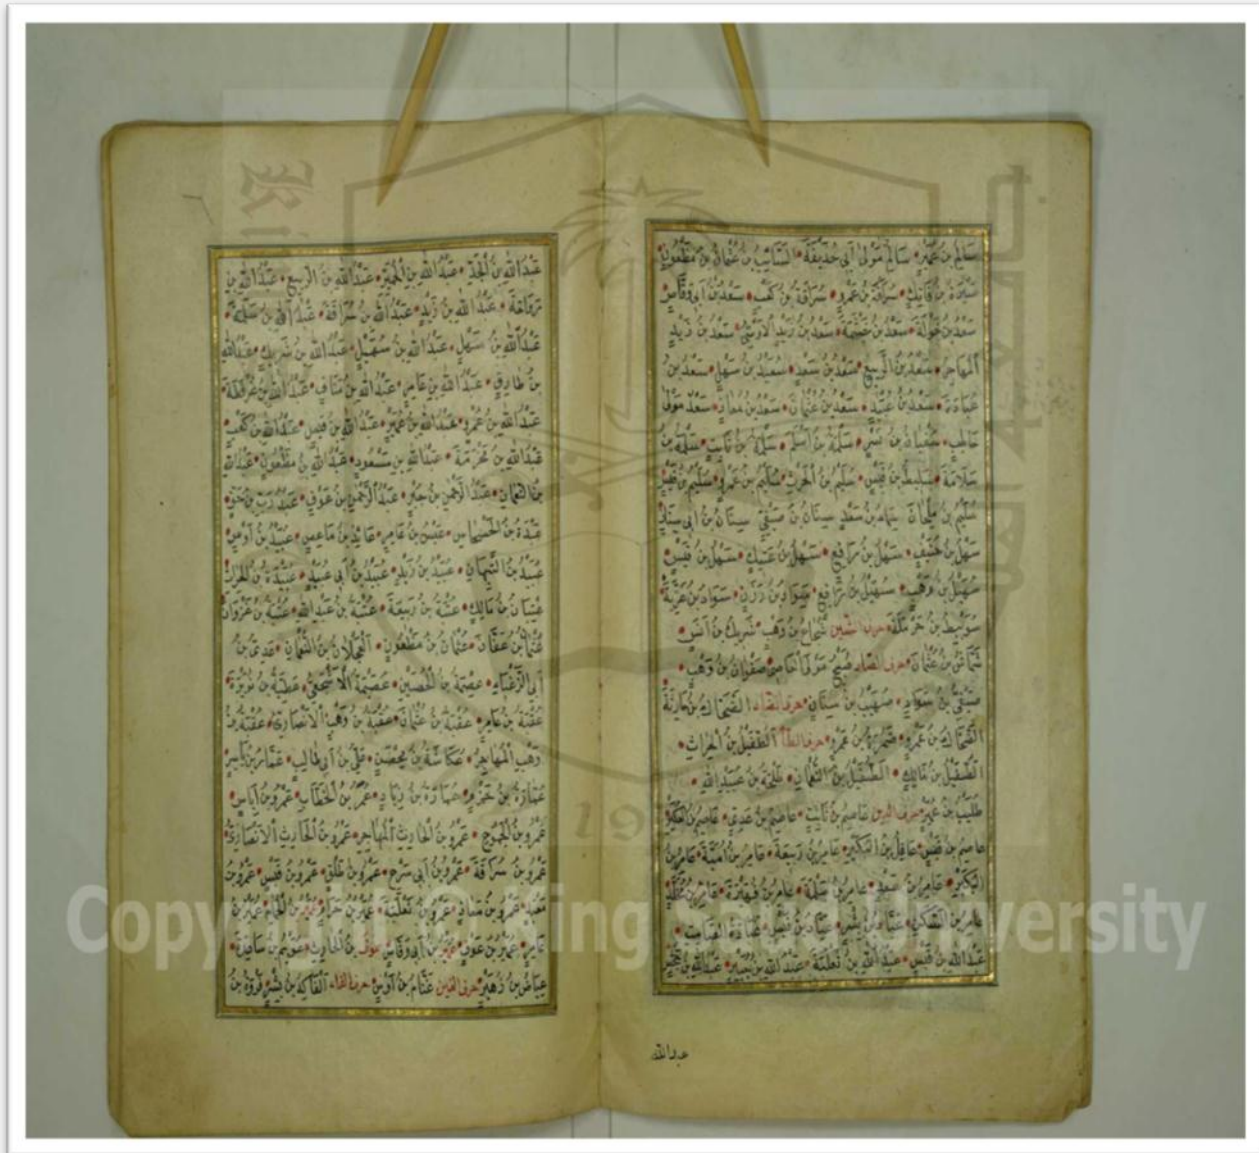 سَالِم بن عُمَيْر سَالِم مَوْلى أبى حذيفة السَّائِب بن عُثمان بن مَظْعُون
سَبْرَة بن فَاتِك سُرَاقَة بن عَمرو سُرَاقَة بن كَعْب سَعْد بن أبى وقّاص
سَعْد بن خَوْلَة سَعْد بن خَيْثَمَة سَعْد بن زَيْد الاوسى سَعْد بن زيد
المهاجر سَعْد بن الربيع سَعْد بن سَعْد سَعيد بن سَهل سَعْد بن
عُبَادَة سَعْد بن عُبَيْد سَعْد بن عُثمان سَعْد بن مُعاذ سَعْد مَوْلى
سُفيان بن بشر سَلَمَة بن أسلم سَلَمَة بن ثابت سَلَمَة بن
سَلَامَة سَلِيط بن قيس سُلَيْم بن الحرث سُلَيْم بن عَمرو سُلَيْم بن قيس
سُلَيْم بن مِلْحَان سِنَان بن صَيْفى سِنَان بن ابى سنان
سَهْل بن حُنَيْف سَهْل بن رَافِع سَهْل بن عَتِيك سَهْل بن قيس
سُهَيْل بن وَهْب سُهَيْل بن رَافِع سَوَاد بن سَوَاد بن غَزِيَّة
سُوَيْبِط بن حَرْمَلَة حرف الشين شُجاع بن وَهْب شَرِيك بن أنس
شَمَّاس بن عُثمان حرف الصاد صُبَيْح مَوْلى أبى العاص صَفْوَان بن وَهْب
صَيْفِى بن سَوَاد صُهَيْب بن سِنَان حرف الضاد الضَّحَّاك بن حَارِثَة
الضَّحَّاك بن عَمرو ضَمْرَة بن عَمرو حرف الطاء الطُّفَيْل بن الحرث
الطُّفَيْل بن مالك الطُّفَيْل بن النُّعمان طَلْحَة بن عُبيد الله
طُلَيْب بن عُمَير حرف العين عاصِم بن ثَابِت عاصِم بن عَدِى عاصِم بن العُكَيْر
عاصِم بن قيس عاقِل بن البُكَيْر عامِر بن رَبِيعَة عامِر بن أُمَيَّة عامِر بن
البُكَيْر عامِر بن عامِر بن سَلَمَة عامِر بن فُهَيْرَة عامِر بن مُخَلَّد
عامِر بن السكن عَبَّاد بن بِشر عَبَّاد بن قيس عُبَادَة بن الصَّامِت
عبدُ الله بن قيس عبدُ الله بن ثَعْلَبَة عبدُ الله بن جُبَيْر عبدُ الله بن جَحْش
عبدالله
عَبْدُ الله بن الجَدّ عَبْدُ الله بن الحُمَيِّر عَبْدُ الله بن الربيع عَبْدُ الله بن
رَوَاحَة عَبْدُ الله بن زَيْد عَبْدُ الله بن سُرَاقَة عَبْدُ الله بن سَلَمَة
عَبْدُ الله بن سَهْل عَبْدُ الله بن سُهَيْل عَبْدُ الله بن شَرِيك عَبْدُ الله
بن طارِق عَبْدُ الله بن عامِر عَبْدُ الله بن مَنَاف عَبْدُ الله بن عُرْفُطَة
عَبْدُ الله بن عَمْرو عَبْدُ الله بن عُمَيْر عَبْدُ الله بن قيس عَبْدُ الله بن كَعْب
عَبْدُ الله بن مَخْرَمَة عَبْدُ الله بن مَسْعُود عَبْدُ الله بن مَظْعُون عَبْدُ الله
بن النُّعمان عَبْدُ الرحمن بن جَبْر عَبْدُ الرحمن بن عَوْف عَبْدُ رَبّ بن حَقّ
عَبْدَة بن الحَسْحَاس عَبْس بن عامِر عَائِذ بن مَاعِص عُبَيْد بن أوس
عُبَيْد بن التَّيِّهَان عُبَيْد بن زَيْد عُبَيْد بن أبى عُبَيْد عُبَيْدَة بن الحرث
عِتْبَان بن مالك عُتْبَة بن رَبِيعَة عُتْبَة بن عَبد الله عُتْبَة بن غَزْوَان
عُثمان بن عَفَّان عُثمان بن مَظْعُون العَجْلَان بن النُّعمان عَدِى بن
أبى الزَّغْبَاء عِصْمَة بن الحُصَيْن عُصَيْمَة الأَشْجَعِى عَطِيَّة بن نُوَيْرَة
عُقْبَة بن عامِر عُقْبَة بن عُثمان عُقْبَة بن وَهْب الأَنْصَارِى عُقْبَة بن
وَهْب المُهاجر عُكَاشَة بن مِحْصَن عَلِىّ بن أبى طالِب عَمَّار بن يَاسِر
عُمَارَة بن حَزْم عُمَارَة بن زِيَاد عُمَر بن الخَطَّاب عَمْرو بن أياس
عَمْرو بن الجَمُوح عَمْرو بن الحارِث المُهاجر عَمْرو بن الحَارِث الأَنْصَارِى
عَمْرو بن سُرَاقَة عَمْرو بن أبى سَرْح عَمْرو بن طَلْق عَمْرو بن قيس عَمْرو بن
مَعْبَد عَمْرو بن ثَعْلَبَة عُمَيْر بن حَرَام عُمَيْر بن الحُمَام عُمَيْر بن
عامِر عُمَيْر بن عَوْف عُمَيْر بن أبى وقّاص عَوْف بن الحارث عُوَيْم بن سَاعِدَة
عِيَاض بن زُهَيْر حرف الغين غَنَّام بن أوس حرف الفاء الفَاكِه بن بِشر فَرْوَة بن
Copyright © King Saud University